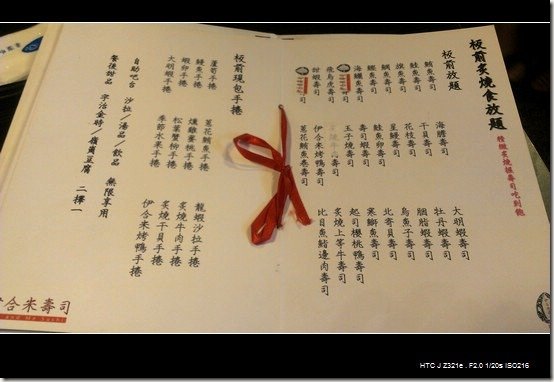 板前炙燒食放題
特級炙燒握壽司吃到飽
板前放題
鮪魚壽司
海膽壽司
大明蝦壽司
鮭魚壽司
干貝壽司
牡丹蝦壽司
旗魚壽司
花枝壽司
胭脂蝦壽司
鯛魚壽司
星鰻壽司
烏魚子壽司
鰹魚壽司
鮭魚卵壽司
北寄貝壽司
海鱺魚壽司
壽司蝦壽司
寒鰤魚壽司
玉子燒壽司
起司櫻桃鴨壽司
飛烏虎壽司
炙燒上等牛壽司
甜蝦壽司
伊合米烤鴨壽司
比目魚鰭邊肉壽司
蔥花鮪魚卷壽司
板前現包手捲
蘆筍手捲
蔥花鮪魚手捲
龍蝦沙拉手捲
鰻魚手捲
燻雞蜜桃手捲
炙燒牛肉手捲
蝦卵手捲
松葉蟹柳手捲
炙燒干貝手捲
大明蝦手捲
季節水果手捲
伊合米烤鴨手捲
自助吧台 沙拉/湯品/飲品 無限享用
餐後甜品 宇治金時/嶺南豆腐 二擇一
合米壽司
HTC J Z321e . F2.0 1/20s ISO216